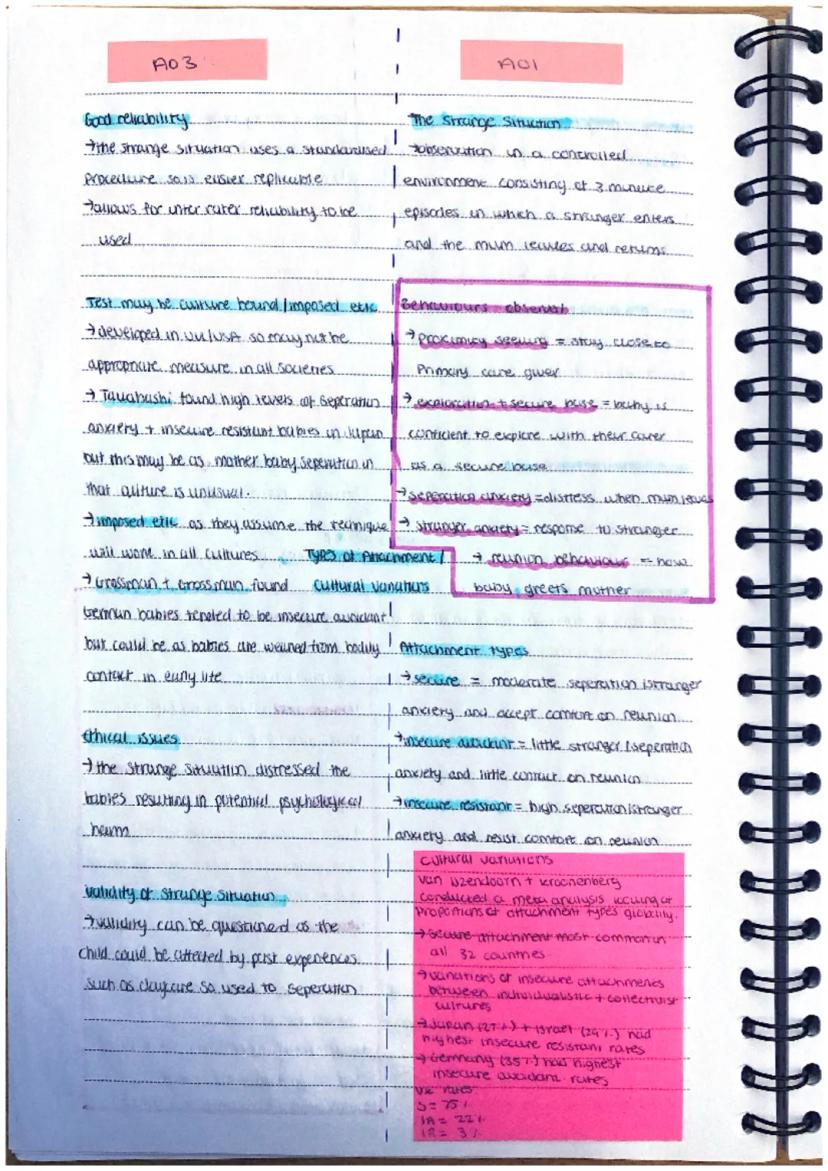 AO3
Good reliability
→the strange situation uses a standardised
procedure so is easier replicable
→allows for inter rater reliability to be
used
Test may be culture bound/imposed etic
→developed in UK/USA so may not be
appropriate measure in all societies
→ Takahashi found high levels of seperation
anxiety + insecure resistant babies in Japan
but this may be as mother baby seperation in
that culture is unusual.
→imposed etic as they assume the technique
will work in all cultures
→ Grossman + Grossman found
German babies tended to be insecure avoidant
but could be as babies are weaned from bodily
contact in early life
Ethical issues
→the strange situation distressed the
babies resulting in potential psychological
harm
Validity of strange situation
→validity can be questioned as the
child could be affected by past experiences
such as daycare so used to seperation
Types of Attachment/
cultural variations
AO1
The strange situation
→observation in a controlled
environment consisting of 3 minute
episodes in which a stranger enters
and the mum leaves and returns
Behaviours observed
→ proximity seeking = stay close to
Primary care giver
→ exploration + secure base = baby is
confident to explore with their carer
as a secure base
→seperation anxiety =distress when mum leaves
→ stranger anxiety = response to stranger
→ reunion behaviour = how
baby greets mother
Attachment types
→secure = moderate seperation/stranger
anxiety and accept comfort on reunion
→insecure avoidant = little stranger/seperation
anxiety and little contact on reunion
→insecure resistant = high seperation/stranger
anxiety and resist comfort on reunion
cultural variations
van ijzendoorn + kroonenberg
conducted a meta analysis looking at
proportions of attachment types globally.
→ secure attachment most common in
all 32 countries
→variations of insecure attachments
between individualistic + collectivist
cultures
→Japan (27%) + Israel (29%) had
highest insecure resistant rates
→ Germany (35%) had highest
insecure avoidant rates
UK rates
S = 75%
IA = 22%
IR = 3%